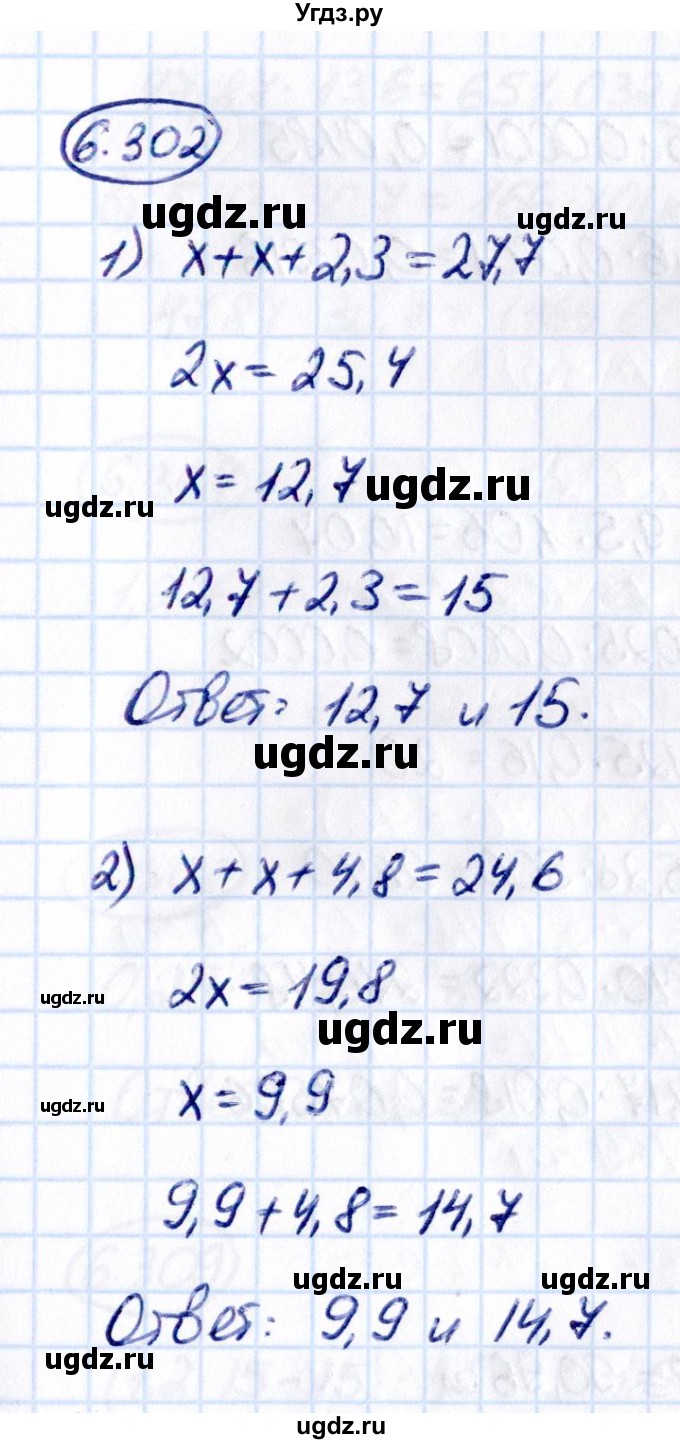 Угдз.ру
6.302
ugdz.ru
ugdz.ru
1) x+x+2,3=27,7
2x=25,4
x=12,7
ugdz.ru
ugdz.ru
12,7+2,3=15
Ответ: 12,7 и 15.
ugdz.ru
2) x+x+4,8=24,6
2x=19,8
ugdz.ru
ugdz.ru
x=9,9
ugdz.ru
9,9+4,8=14,7
ugdz.ru
ugdz.ru
Ответ: 9,9 и 14,7.
ugdz.ru
ugdz.ru